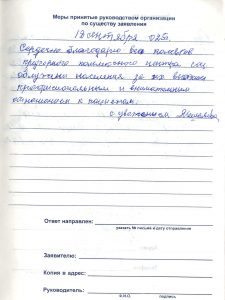 Меры принятые руководством организации
по существу заявления
18 сентября 025.
Сердечно благодарю весь коллектив
центра соц
обслужив населения за их высокий
профессионализм и внимательное
отношение к пациентам.
с уважением
Ответ направлен:
указать № письма и дату отправления
Заявителю:
Копия в адрес:
Руководитель:
Ф.И.О. подпись